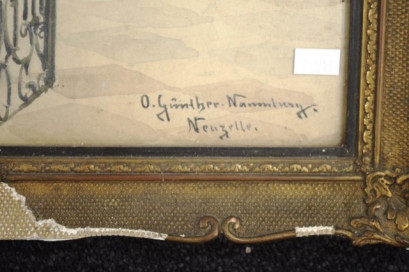 O. Günther-Naumburg.
Neuzelle.